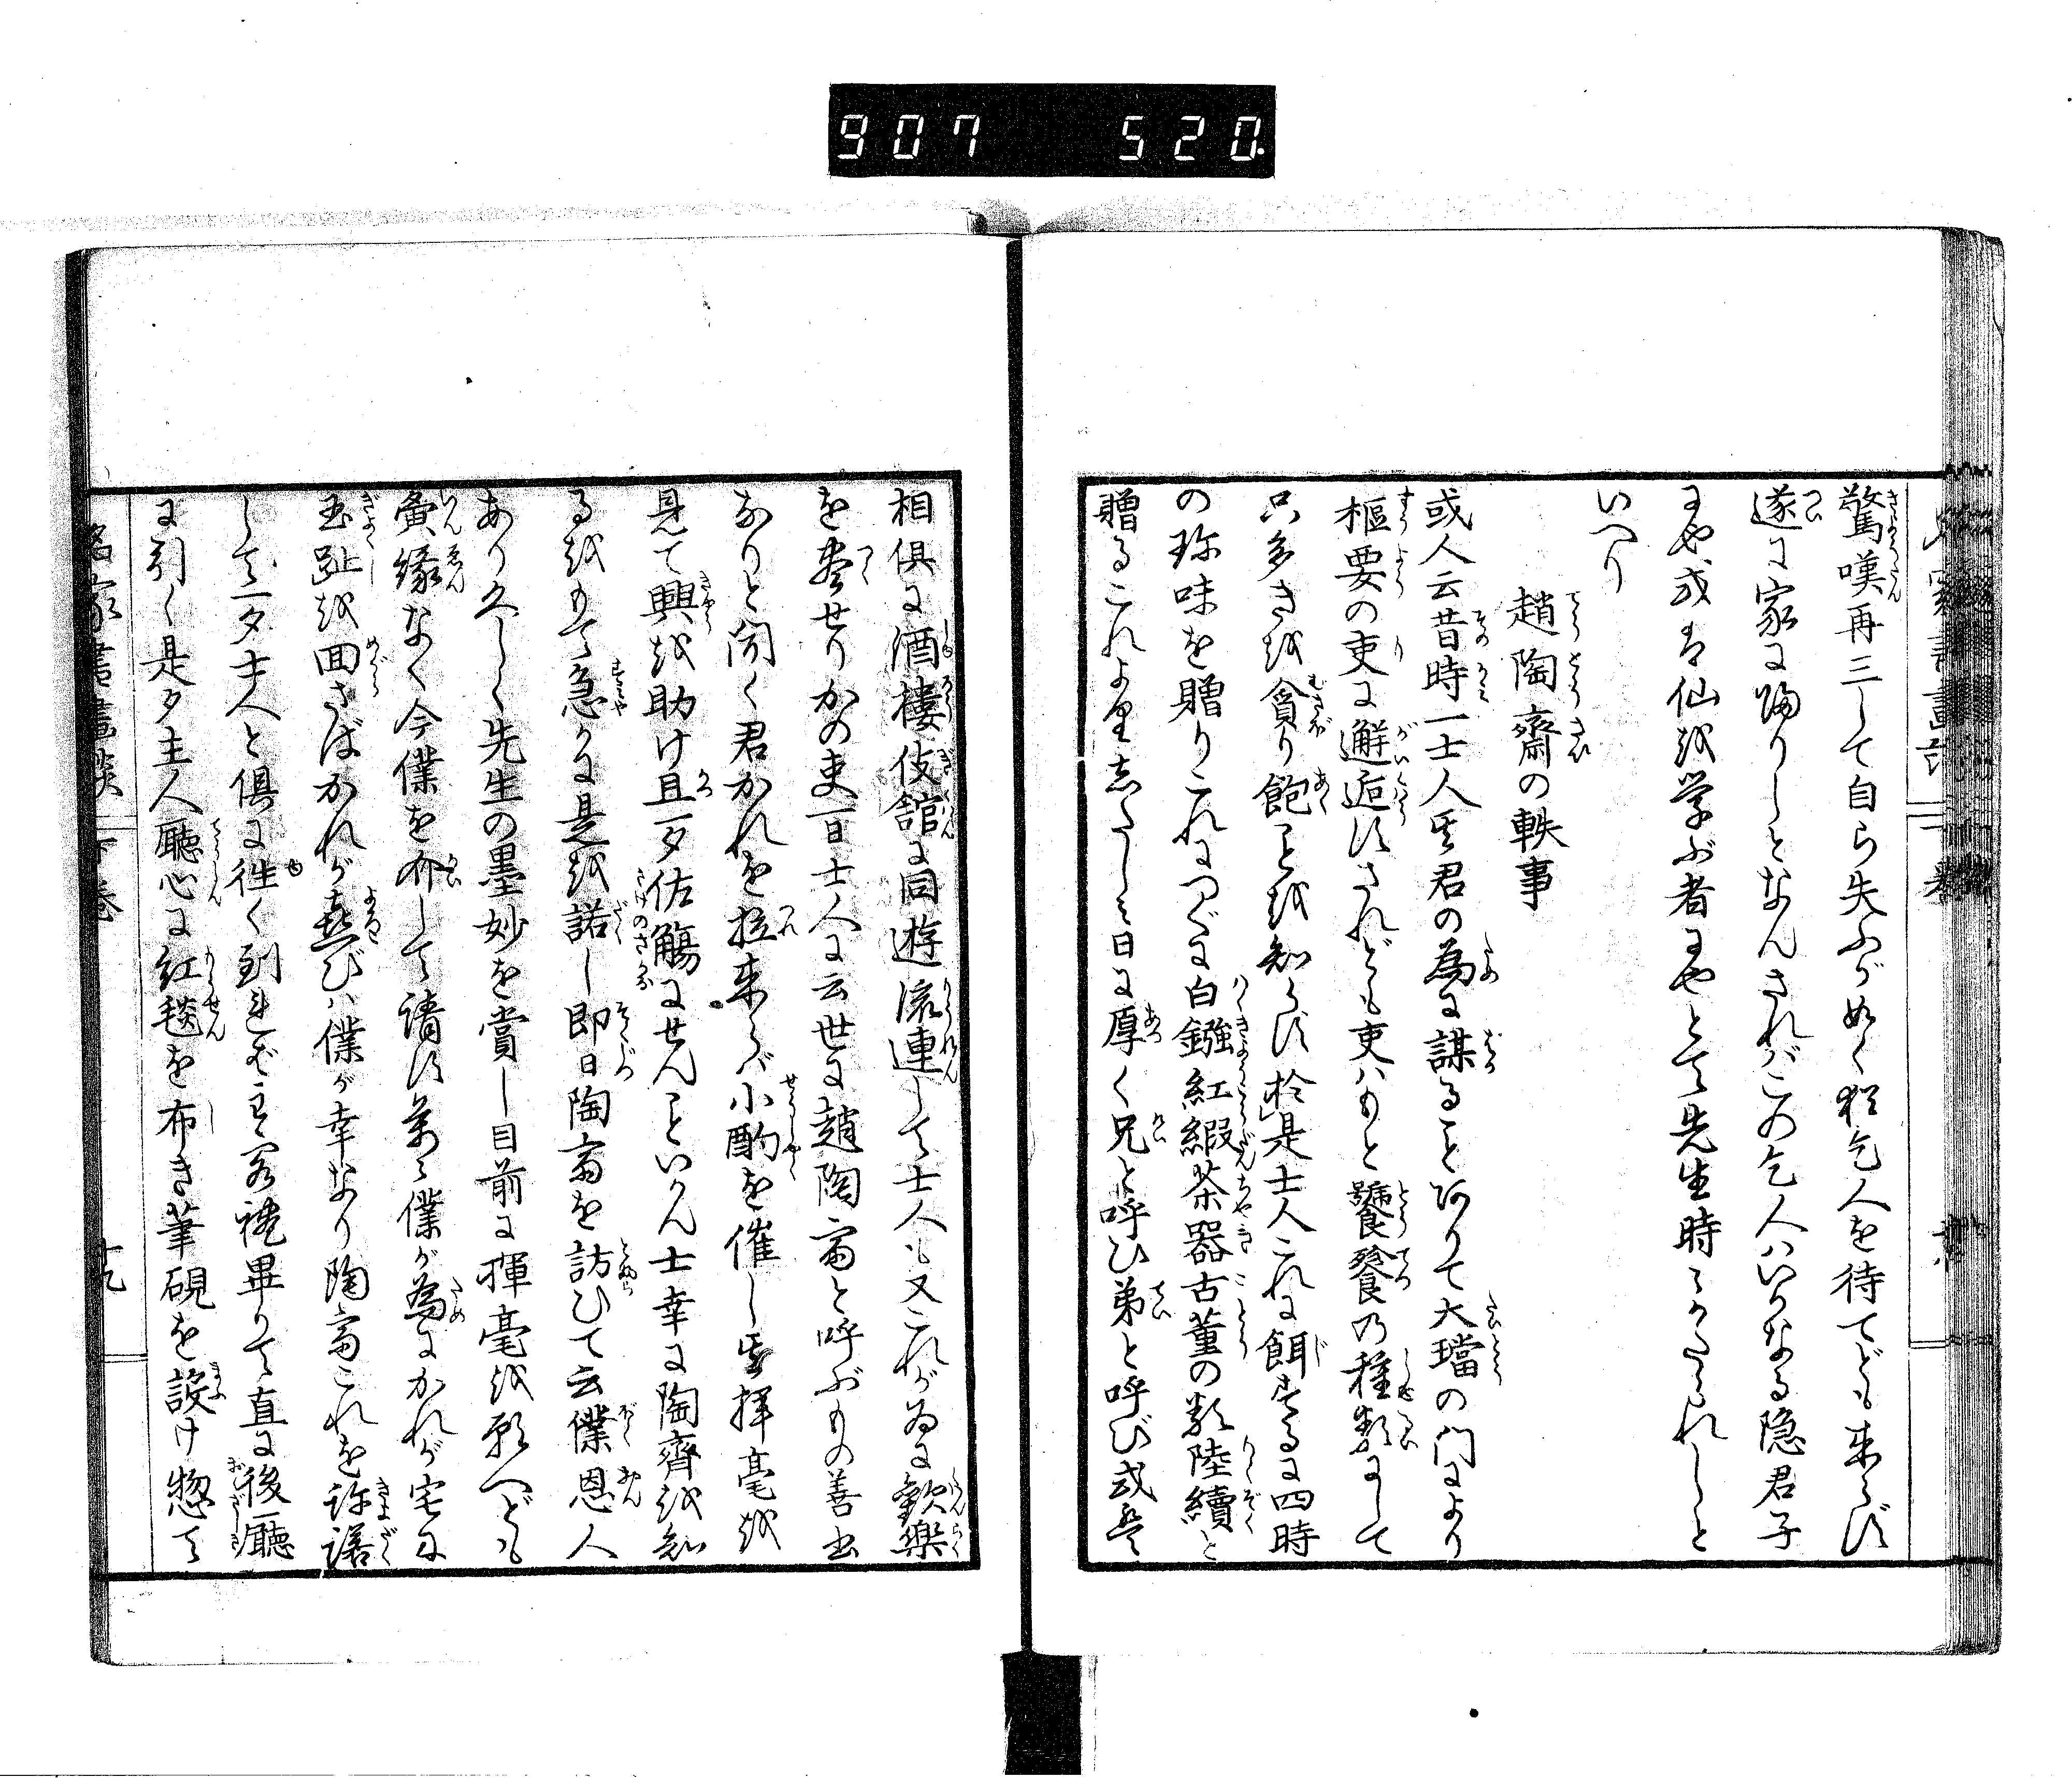 907 520
驚嘆再三して自ら失ふがぬく猶乞人を待てども来らず
遂に家に帰りしとなんさればこの乞人ハいかなる隠君子
にや或は仙を学ぶ者にやとて先生時々かたられしと
いへり
趙陶齋の軼事
或人云昔時一士人某君の為に謀ること阿りて大璫の門により
樞要の吏に邂逅すされども吏ハもと饕餮の種類にして
只多きを貪り飽ことを知らず於是士人これに餌するに四時
の珍味を贈りこれにつぐに白鏹紅緞茶器古董の数陸續と
贈るこれより志たしミ日に厚く兄と呼ひ弟と呼び或は
相俱に酒樓伎館に同遊流連して士人も又これが為に歓樂
を尽せりかの吏一日士人に云世に趙陶斎と呼ぶもの善書
なりと聞く君かれを拉来らバ小酌を催し某揮毫を
見て興を助け且一夕佐觴にせんこといかん士幸に陶齊を知
るをもて急かに是を諾し即日陶斎を訪ひて云僕恩人
あり久しく先生の墨妙を賞し目前に揮毫を願へども
夤縁なく今僕を介して請ふ若し僕が為にかれが宅に
玉趾を回さばかれが喜びハ僕が幸なり陶斎これを許諾
して一夕士人と俱に徃く到れば主客禮畢りて直に後廳
に引く是夕主人廳心に紅毯を布き筆硯を設け惣て
名家書畫談 下巻 十九